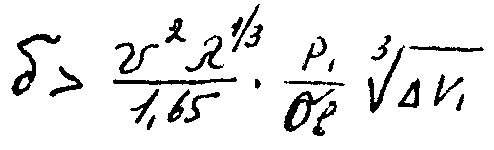 δ > \frac{v^2 r^{1/3}}{1,65} \cdot \frac{P_1}{σ_ℓ} \sqrt[3]{ΔV_1}